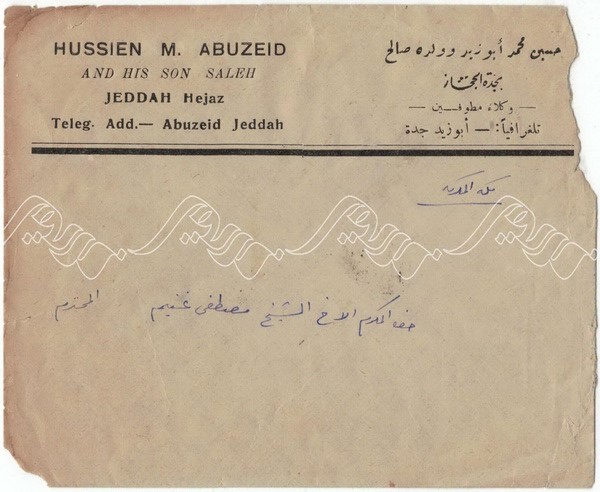 HUSSIEN M. ABUZEID
AND HIS SON SALEH
JEDDAH Hejaz
Teleg. Add.— Abuzeid Jeddah
حسين محمد أبوزيد وولده صالح
بجدة الحجاز
— وكلاء مطوفين —
تلغرافياً: — أبوزيد جدة
مكه المكرمه
حضرة المكرم الاخ الشيخ مصطفى غنيم المحترم